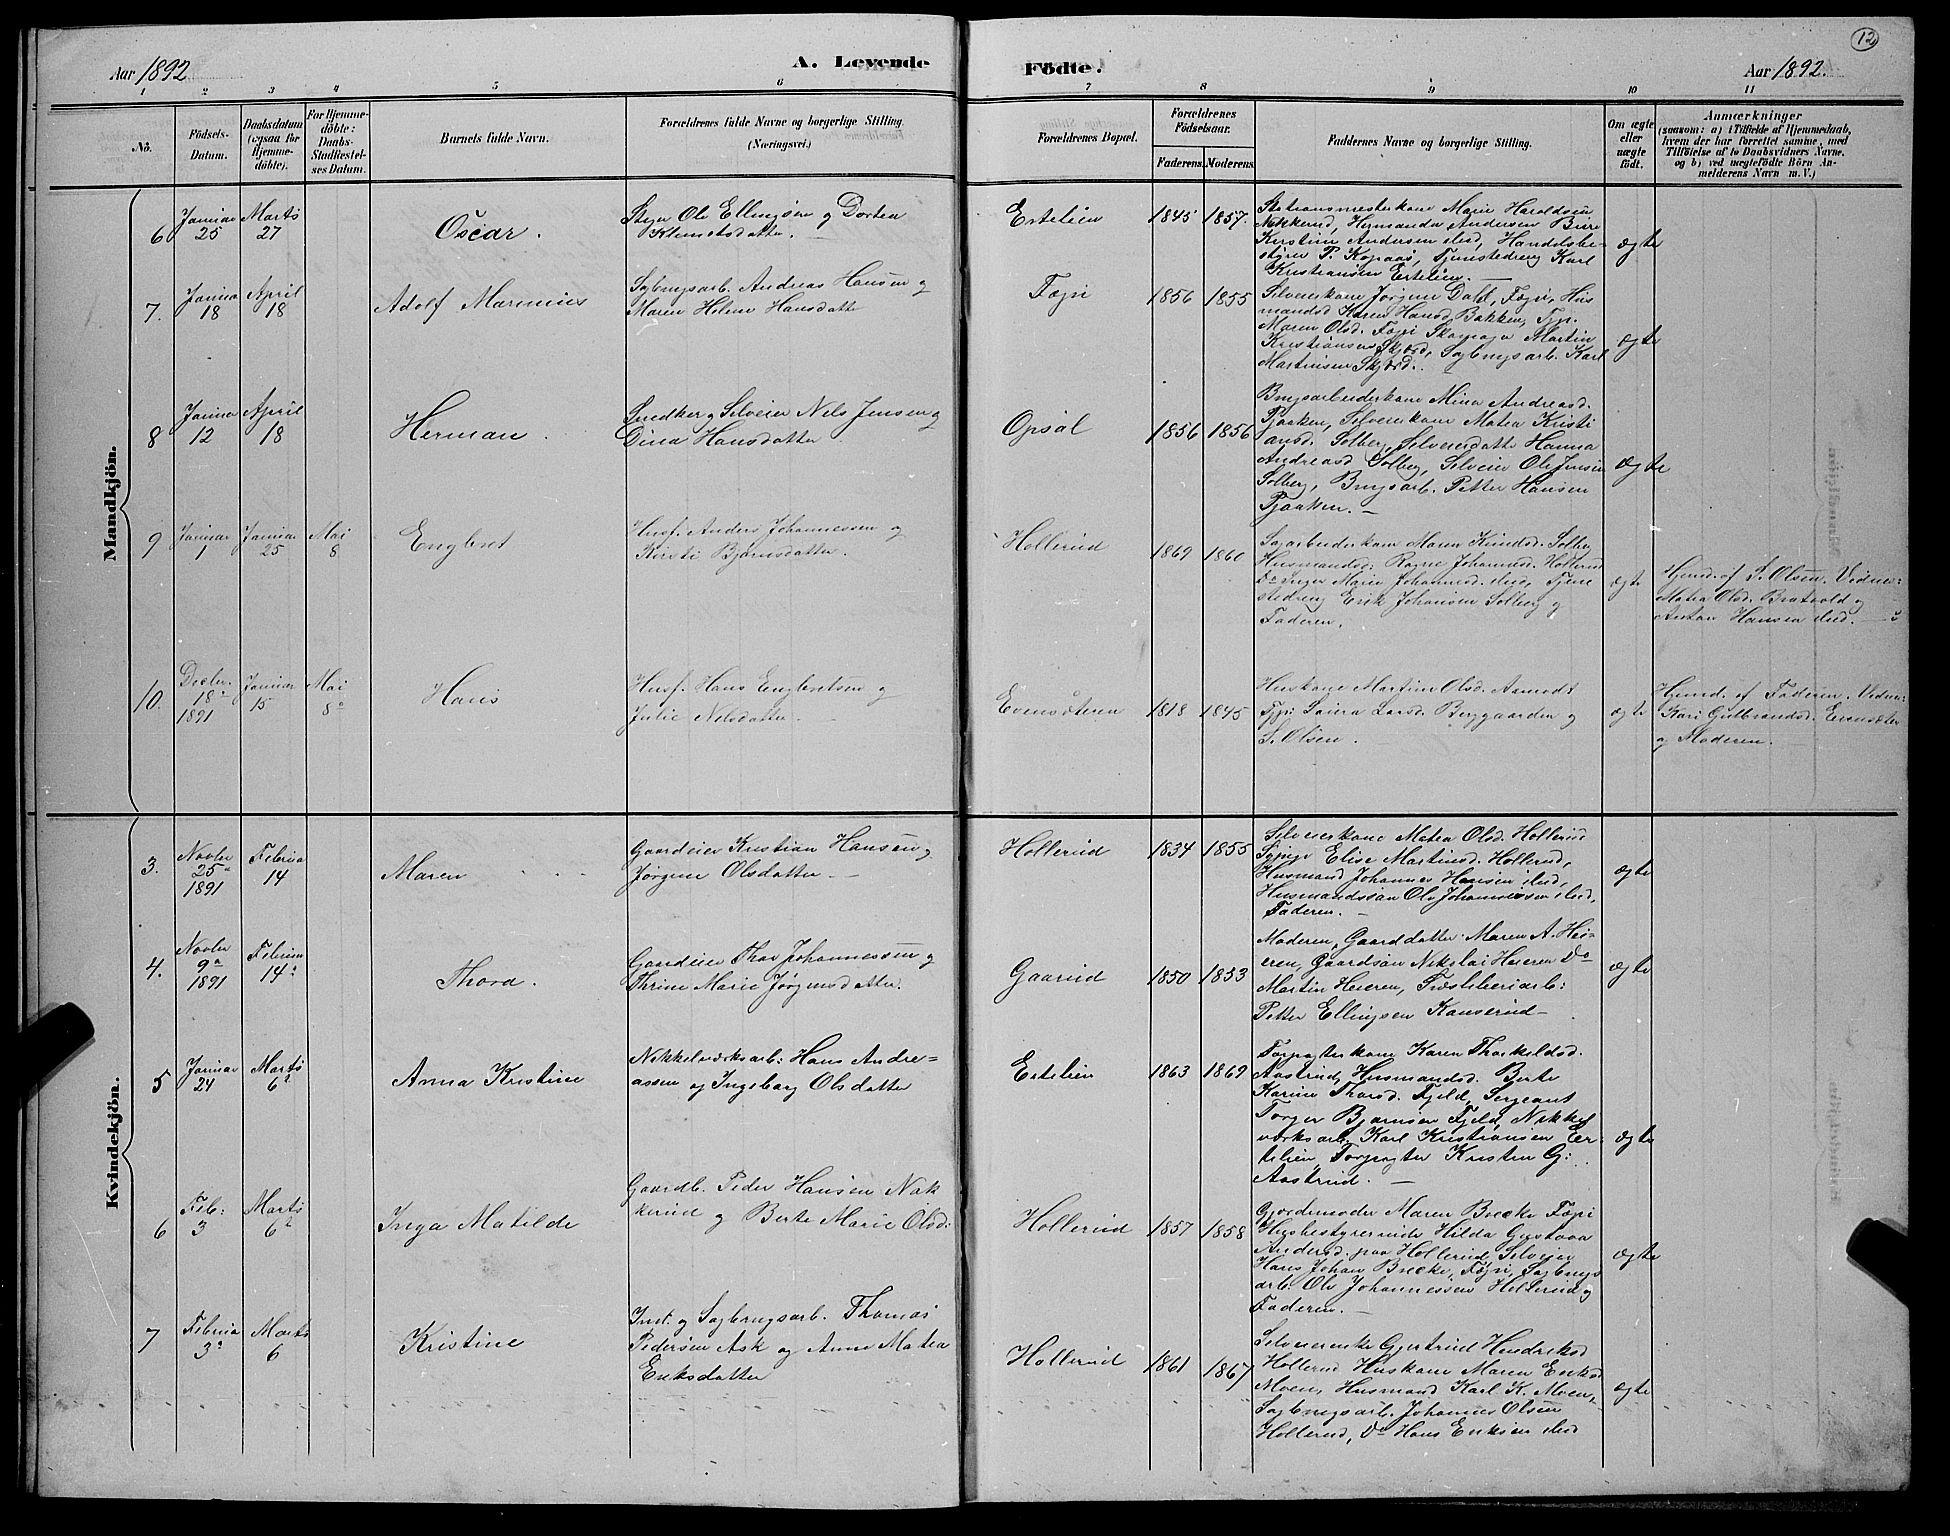 12
Aar 1892
A. Levende
Födte.
Aar 1892.
1 2 3 4 5 6 7 8 9 10 11
No.
Födsels-Datum.
Daabsdatum (ogsaa for Hjemme-döbte).
For Hjemme-döbte: Daabs-Stadfæstel-ses Datum.
Barnets fulde Navn.
Forældrenes fulde Navne og borgerlige Stilling. (Næringsvei.)
Forældrenes Bopæl.
Forældrenes Födselsaar.
Faderens. Moderens.
Faddernes Navne og borgerlige Stilling.
Om ægte eller uægte födt.
Anmærkninger
(saasom: a) i Tilfælde af Hjemmedaab,
hvem der har forrettet samme, med
Tilföielse af to Daabsvidners Navne,
og b) ved uægtefödte Börn An-
melderens Navn m. V.)
Mandkjön.
6
Januar 25
Marts 27
Oscar.
Ole Ellingsen og Dorthea
Klemetsdatter.
Ertelien
1845 1857.
Stationsmesterkone Marie Haraldsen
Nækkerud, Hermanda Andersen
Kirstine Andersen ibid, Handelsbe-
styrer P. Kopaas, Tjenestedreng Karl
Kristiansen Ertelien.
ægte
7.
Januar 18
April 18
Adolf Marinius
Sagbrugsarb. Andreas Hansen og
Maren Helene Hansdatter
Fægri
1856 1855
Selveierkone Jørgine Dahl, Fægri, Hus
mandsd Karen Hansd. Bakken, Tjp.
Maren Olsd. Fægri Skomager Martin
Kristiansen Skjørd, Sagbrugsarb. Karl
Martinsen Skjørd.
ægte
8
Januar 12
April 18
Herman.
Snedker og Selveier Nels Jensen og
Dina Hansdatter
Opsal
1856 1856
Brugsarbeiderkone Mina Andreasd.
Tjaaken, Selveierkone Matea Kristi
ansd. Solberg, Selveierdatter Hanna
Andreasd Solberg, Selveier Ole Jensen
Solberg, Brugsarb. Petter Hansen
Tjaaken.
ægte
9
Januar 1
Januar 25
Mai 8
Englret
Husf. Anders Johannessen og
Kirsti Bjørnsdatter.
Hollerud
1869 1860
Sagarbeiderkone Maren Knudsd. Solberg
Husmandsd. Ragne Johannesd. Hollerud
Do Inger Marie Johannesd. ibid, Tjene
stedreng Erik Johansen Solberg og
Faderen.
ægte
Hjemd. af S. Olsen. Vidner:
Matea Olsd. Bratvold og
Anton Hansen ibid.
10.
Decbr. 18 1891
Januar 15
Mai 8
Hans
Husf. Hans Engbretsen og
Julie Nelsdatter.
Evensæteren
1818 1845
Huskone Martine Olsd. Aamodt
Tjp: Laura Larsd. Berggaarden og
S. Olsen.
ægte
Hjemd. af Faderen. Vidner:
Kari Gulbrandsd. Evensæter
og Moderen.
Kvindekjön.
3.
Novbr 25 1891
Februar 14
Maren
Gaardeier Kristian Hansen og
Jørgine Olsdatter.
Hollerud
1834 1855
Selveierkone Matea Olsd. Hollerud
Elise Martinsd. Hollerud,
Husmand Johannes Hansen ibid,
Husmandssøn Ole Johannessen ibid,
Faderen.
ægte
4.
Novbr 9 1891
Februar 14
Thora.
Gaardeier Thor Johannessen og
Thrine Marie Jørgensdatter.
Gaarud
1850 1853
Moderen, Gaarddatter Maren A. Hei-
eren, Gaardsøn Nikolai Heieren Do
Martin Heieren, Træsliberiarb:
Petter Ellingsen Kanserud
ægte
5
Januar 24
Marts 6
Anna Kristine
Nikkelværksarb: Hans Andre=
assen og Ingeborg Olsdatter
Ertelien
1863 1869
Forpagterkone Karen Thorkeldsd.
Aastrud, Husmandsd. Berte
Karine Thorsd. Fjeld, Sergeant
Torger Bjørnsen Fjeld, Nikkel
værksarb. Karl Kristiansen Er-
telien, Forpagter Kristen G:
Aastrud.
ægte
6
Feb: 3
Marts 6
Inga Matilde
Gaardb. Peder Hansen Næk
kerud og Berte Marie Olsd:
Hollerud
1857 1858
Gjordemoder Maren Brecke Fægri
Husbestyrerinde Hilda Gustava
Andersd. paa Hollerud, Selveier
Hans Johan Brecke, Fægri, Sagbrugs
arb. Ole Johannessen Hollerud og
Faderen.
ægte
7
Februar 3
Marts 6
Kristine
Inst. og Sagbrugsarb. Thomas
Pedersen Ask og Anne Matea
Eriksdatter
Hollerud
1861 1867
Selveierenke Gjertrud Hendriksd
Hollerud Huskone Maren Eriksd
Moen, Husmand Karl K. Moen,
Sagbrugsarb. Johannes Olsen
Hollerud, Do Hans Eriksen ibid
ægte